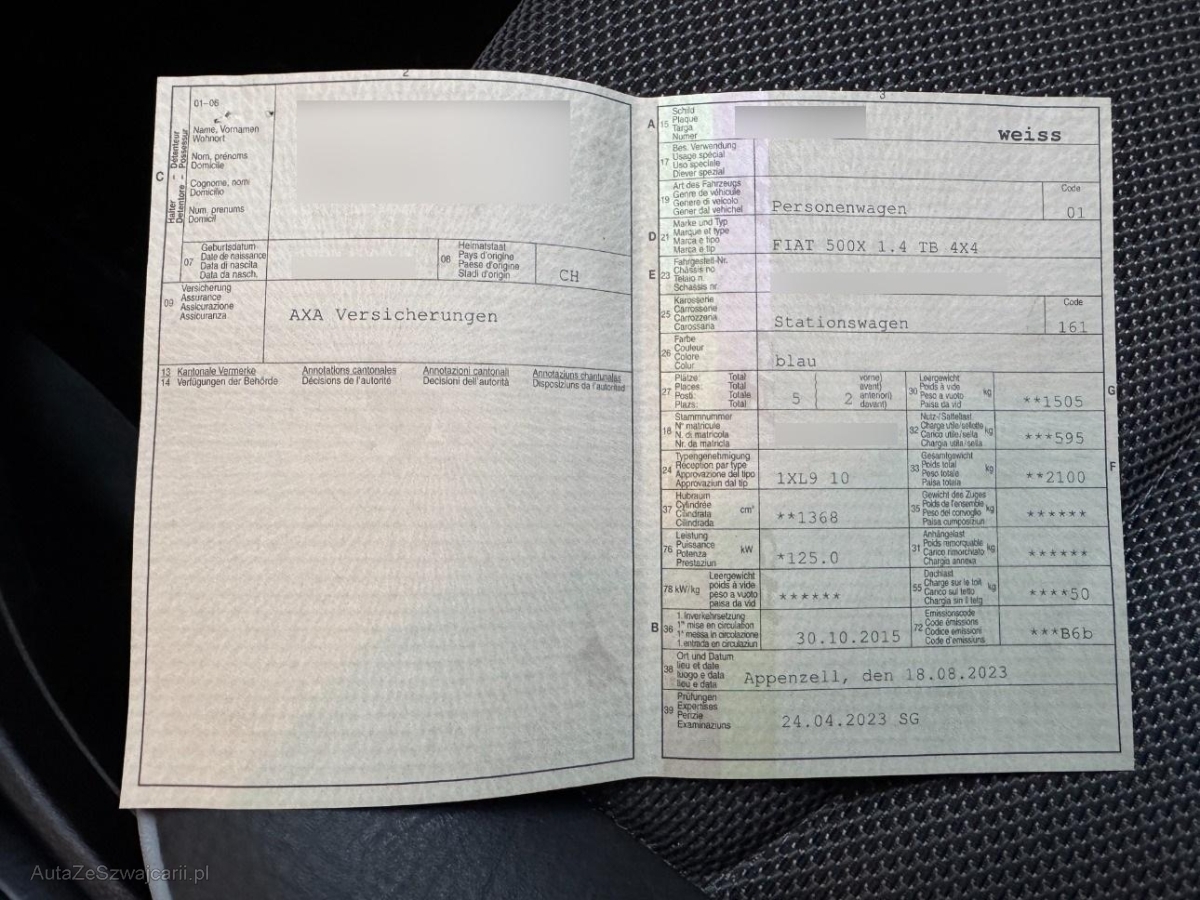 2
01-06
Halter – Détenteur
Detentore – Possessur
C
Name, Vornamen
Wohnort
Nom, prénoms
Domicile
Cognome, nomi
Domicilio
Num, prenums
Domicil
07
Geburtsdatum
Date de naissance
Data di nascita
Data da nasch.
08
Heimatstaat
Pays d'origine
Paese d'origine
Stadi d'origin
CH
09
Versicherung
Assurance
Assicurazione
Assicuranza
AXA Versicherungen
13 Kantonale Vermerke Annotations cantonales Annotazioni cantonali Annotaziuns chantunalas
14 Verfügungen der Behörde Décisions de l'autorité Decisioni dell'autorità Disposiziuns da l'autoritad
3
A 15
Schild
Plaque
Targa
Numer
weiss
17
Bes. Verwendung
Usage spécial
Uso speciale
Diever spezial
19
Art des Fahrzeugs
Genre de véhicule
Genere di veicolo
Gener dal vehichel
Personenwagen
Code
01
D 21
Marke und Typ
Marque et type
Marca e tipo
Marca e tip
FIAT 500X 1.4 TB 4X4
E 23
Fahrgestell-Nr.
Châssis no
Telaio n.
Schassis nr.
25
Karosserie
Carrosserie
Carrozzeria
Carossaria
Stationswagen
Code
161
26
Farbe
Couleur
Colore
Colur
blau
27
Plätze: Total vorne)
Places: Total avant)
Posti: Totale anteriori)
Plazs: Total davant)
5 { 2
30
Leergewicht
Poids à vide
Peso a vuoto
Paisa da vid
kg
**1505
G
18
Stammnummer
N° matricule
N. di matricola
Nr. da matricla
32
Nutz-/Sattellast
Charge utile/sellette
Carico utile/sella
Chargia utila/sella
kg
***595
24
Typengenehmigung
Réception par type
Approvazione del tipo
Approvaziun dal tip
1XL9 10
33
Gesamtgewicht
Poids total
Peso totale
Paisa totala
kg
**2100
F
37
Hubraum
Cylindrée
Cilindrata
Cilindrada
cm³
**1368
35
Gewicht des Zuges
Poids de l'ensemble
Peso del convoglio
Paisa cumposiziun
kg
******
76
Leistung
Puissance
Potenza
Prestaziun
kW
*125.0
31
Anhängelast
Poids remorquable
Carico rimorchiato
Chargia annexa
kg
******
78 kW/kg
Leergewicht
poids à vide
peso a vuoto
paisa da vid
******
55
Dachlast
Charge sur le toit
Carico sul tetto
Chargia sin il tetg
kg
****50
B 36
1. Inverkehrsetzung
1re mise en circulation
1a messa in circolazione
1. entrada en circulaziun
30.10.2015
72
Emissionscode
Code émissions
Codice emissioni
Code d'emissiuns
***B6b
38
Ort und Datum
lieu et date
luogo e data
lieu e data
Appenzell, den 18.08.2023
39
Prüfungen
Expertises
Perizie
Examinaziuns
24.04.2023 SG
AutaZeSzwajcarii.pl